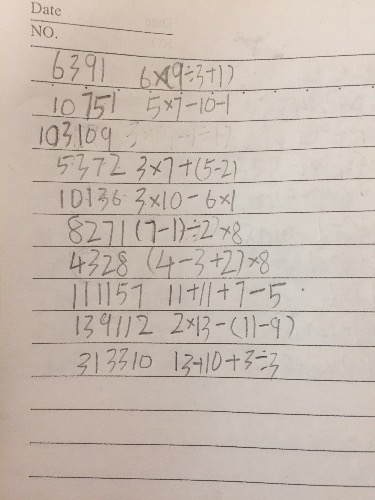 Date
NO.
6391 6×(9÷3+1)
10 751 5×7-10-1
103109
5372 3×7+(5-2)
10136 3×10-6×1
8271 (7-1)÷2×8
4328 (4-3+2)×8
111157 11+11+7-5
139112 2×13-(11-9)
313310 13+10+3÷3